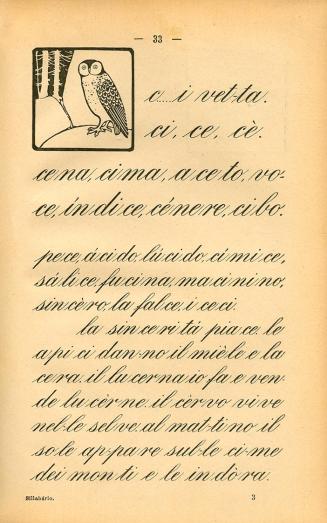 — 33 —
c...i vet-ta.
ci, ce, cè.
ce na, ci ma, a ce to, vo-
ce, ín di ce, cé nere, ci bo.
pe ce, á ci do, lú ci do, cí mi ce,
sá li ce, fu ci na, ma ci ni no,
sin cè ro, la fal ce, i ce ci.
la sin ce ri tá pia ce. le
a pi ci dan-no il mièle e la
ce ra. il lu cer na io fa e ven-
de lu cèr ne. il cèr vo vi ve
nel-le sel ve. al mat-ti no il
so-le ap-pa re sul-le ci-me
dei mon ti e le in dò ra.
Sillabário.
3